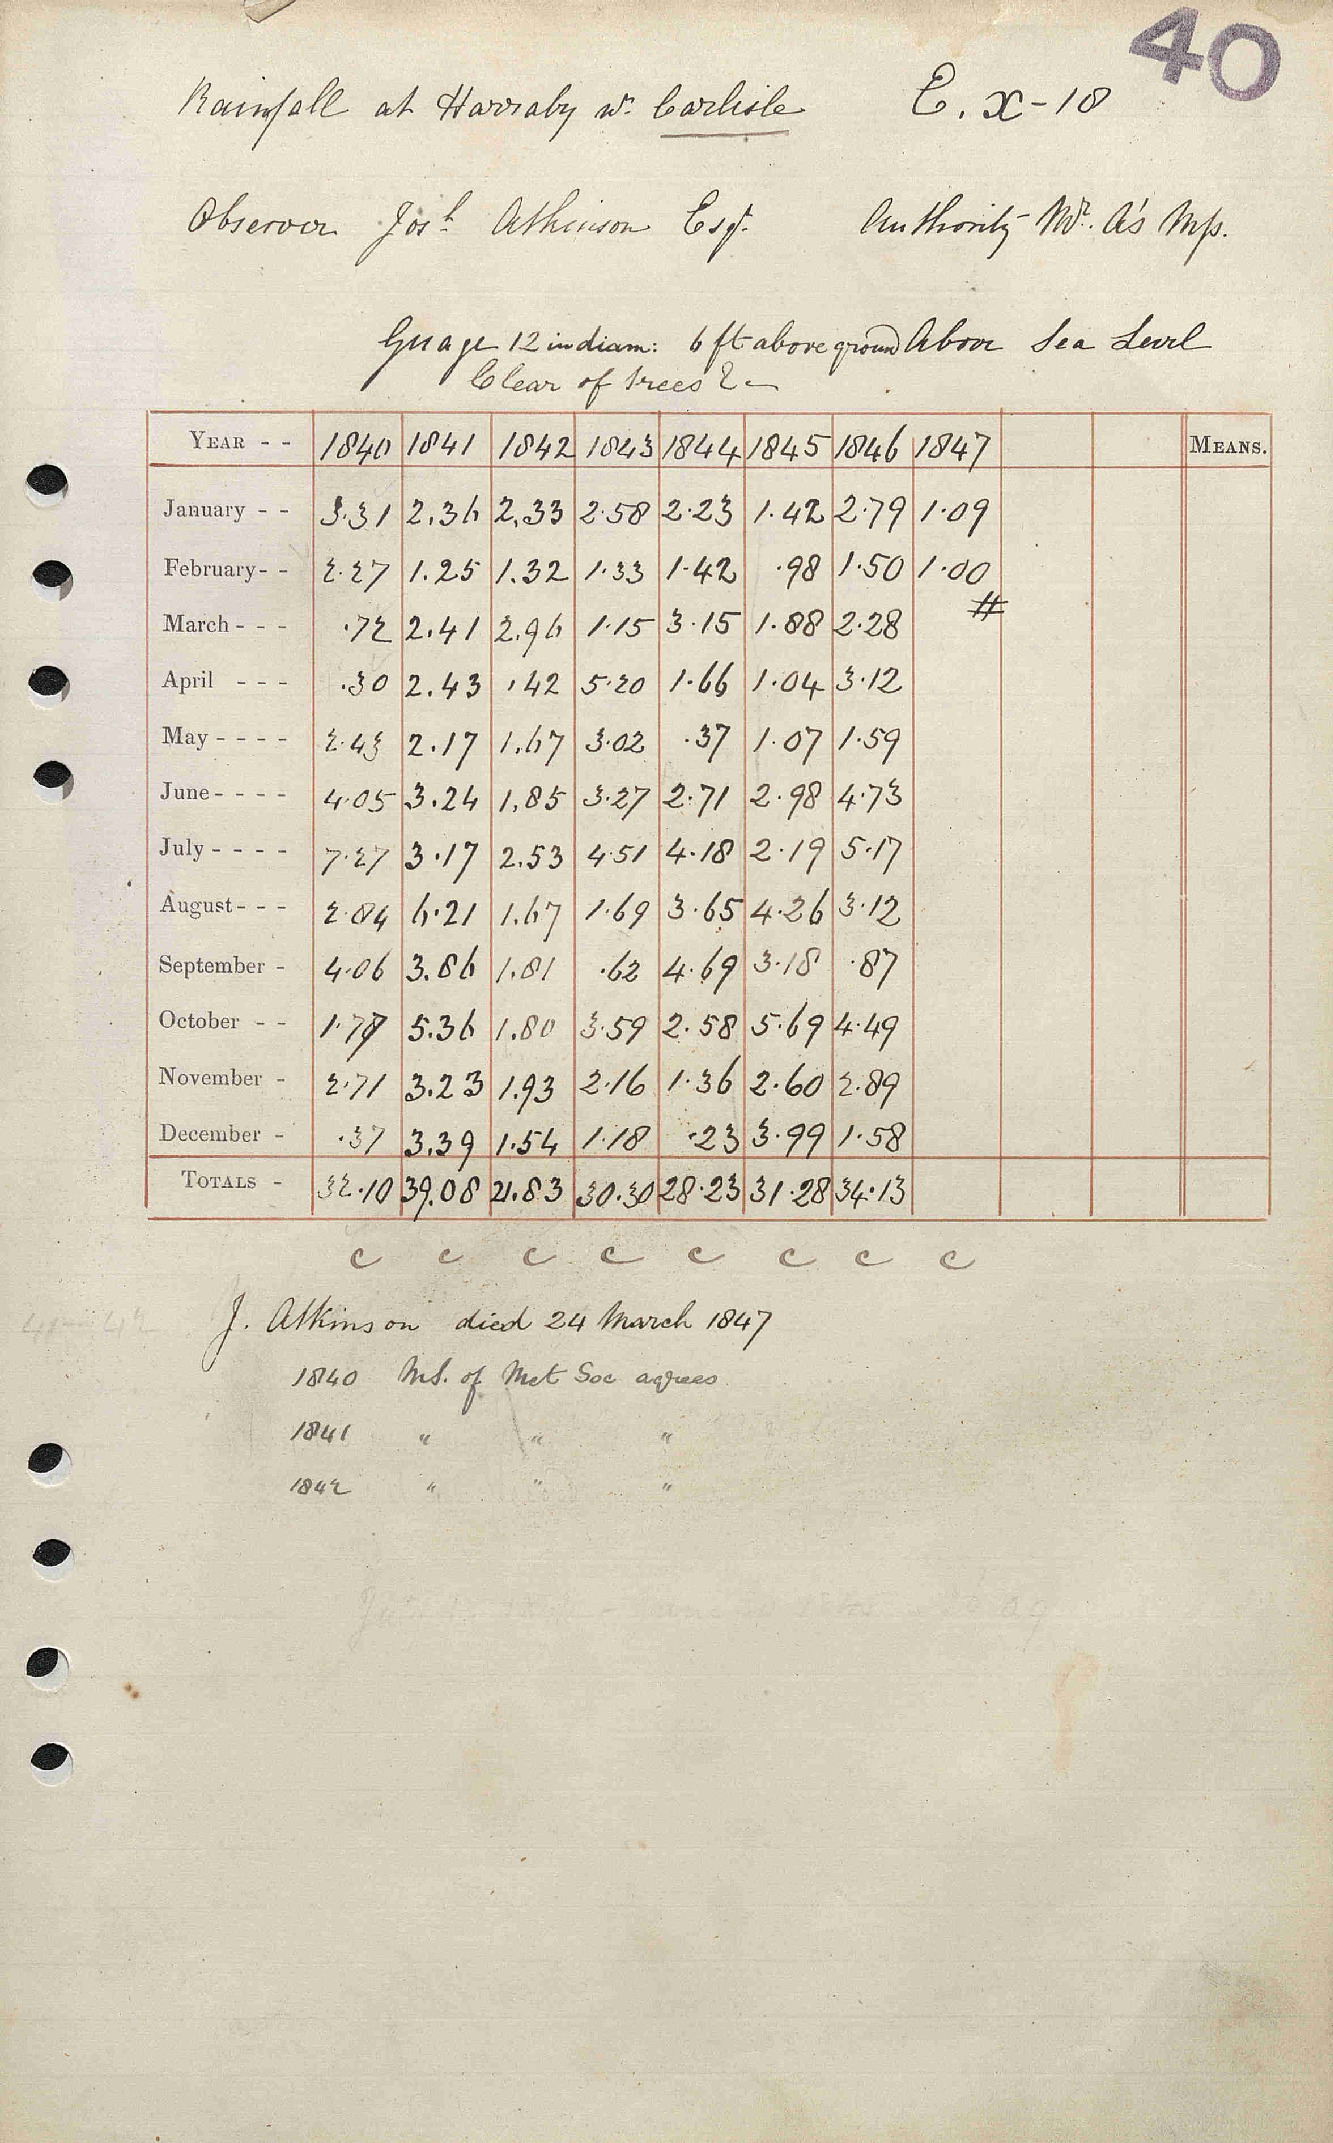 40
Rainfall at Harraby nr. Carlisle E. X-18
Observer Josh Atkinson Esqr. Authority Mr. A's Mss.
Guage 12 in diam: 6 ft above ground Above Sea Level
Clear of trees &c
YEAR - - 1840 1841 1842 1843 1844 1845 1846 1847 MEANS.
January - - 3.31 2.36 2.33 2.58 2.23 1.42 2.79 1.09
February - - 2.27 1.25 1.32 1.33 1.42 .98 1.50 1.00
#
March - - - .72 2.41 2.96 1.15 3.15 1.88 2.28
April - - - .30 2.43 .42 5.20 1.66 1.04 3.12
May - - - - 2.43 2.17 1.67 3.02 .37 1.07 1.59
June - - - - 4.05 3.24 1.85 3.27 2.71 2.98 4.73
July - - - - 7.27 3.17 2.53 4.51 4.18 2.19 5.17
August - - - 2.84 6.21 1.67 1.69 3.65 4.26 3.12
September - 4.06 3.86 1.81 .62 4.69 3.18 .87
October - - 1.77 5.36 1.80 3.59 2.58 5.69 4.49
November - 2.71 3.23 1.93 2.16 1.36 2.60 2.89
December - .37 3.39 1.54 1.18 .23 3.99 1.58
TOTALS - 32.10 39.08 21.83 30.30 28.23 31.28 34.13
c c c c c c c c
J. Atkinson died 24 March 1847
1840 MS. of Met Soc agrees
1841 " " "
1842 " " "